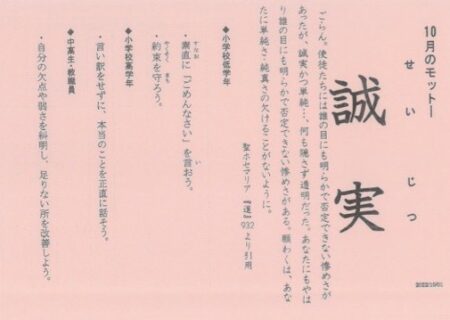 10月のモットー
せいじつ
誠実
ごらん。使徒たちには誰の目にも明らかで否定できない惨めさが
あったが、誠実かつ単純…、何も隠さず透明だった。あなたにもやは
り誰の目にも明らかで否定できない惨めさがある。願わくは、あな
たに単純さ・純真さの欠けることがないように。
聖ホセマリア『道』932より引用
◆小学校低学年
・素直に「ごめんなさい」を言おう。
・約束を守ろう。
◆小学校高学年
・言い訳をせずに、本当のことを正直に話そう。
◆中高生・教職員
・自分の欠点や弱さを糾明し、足りない所を改善しよう。
2022/10/01